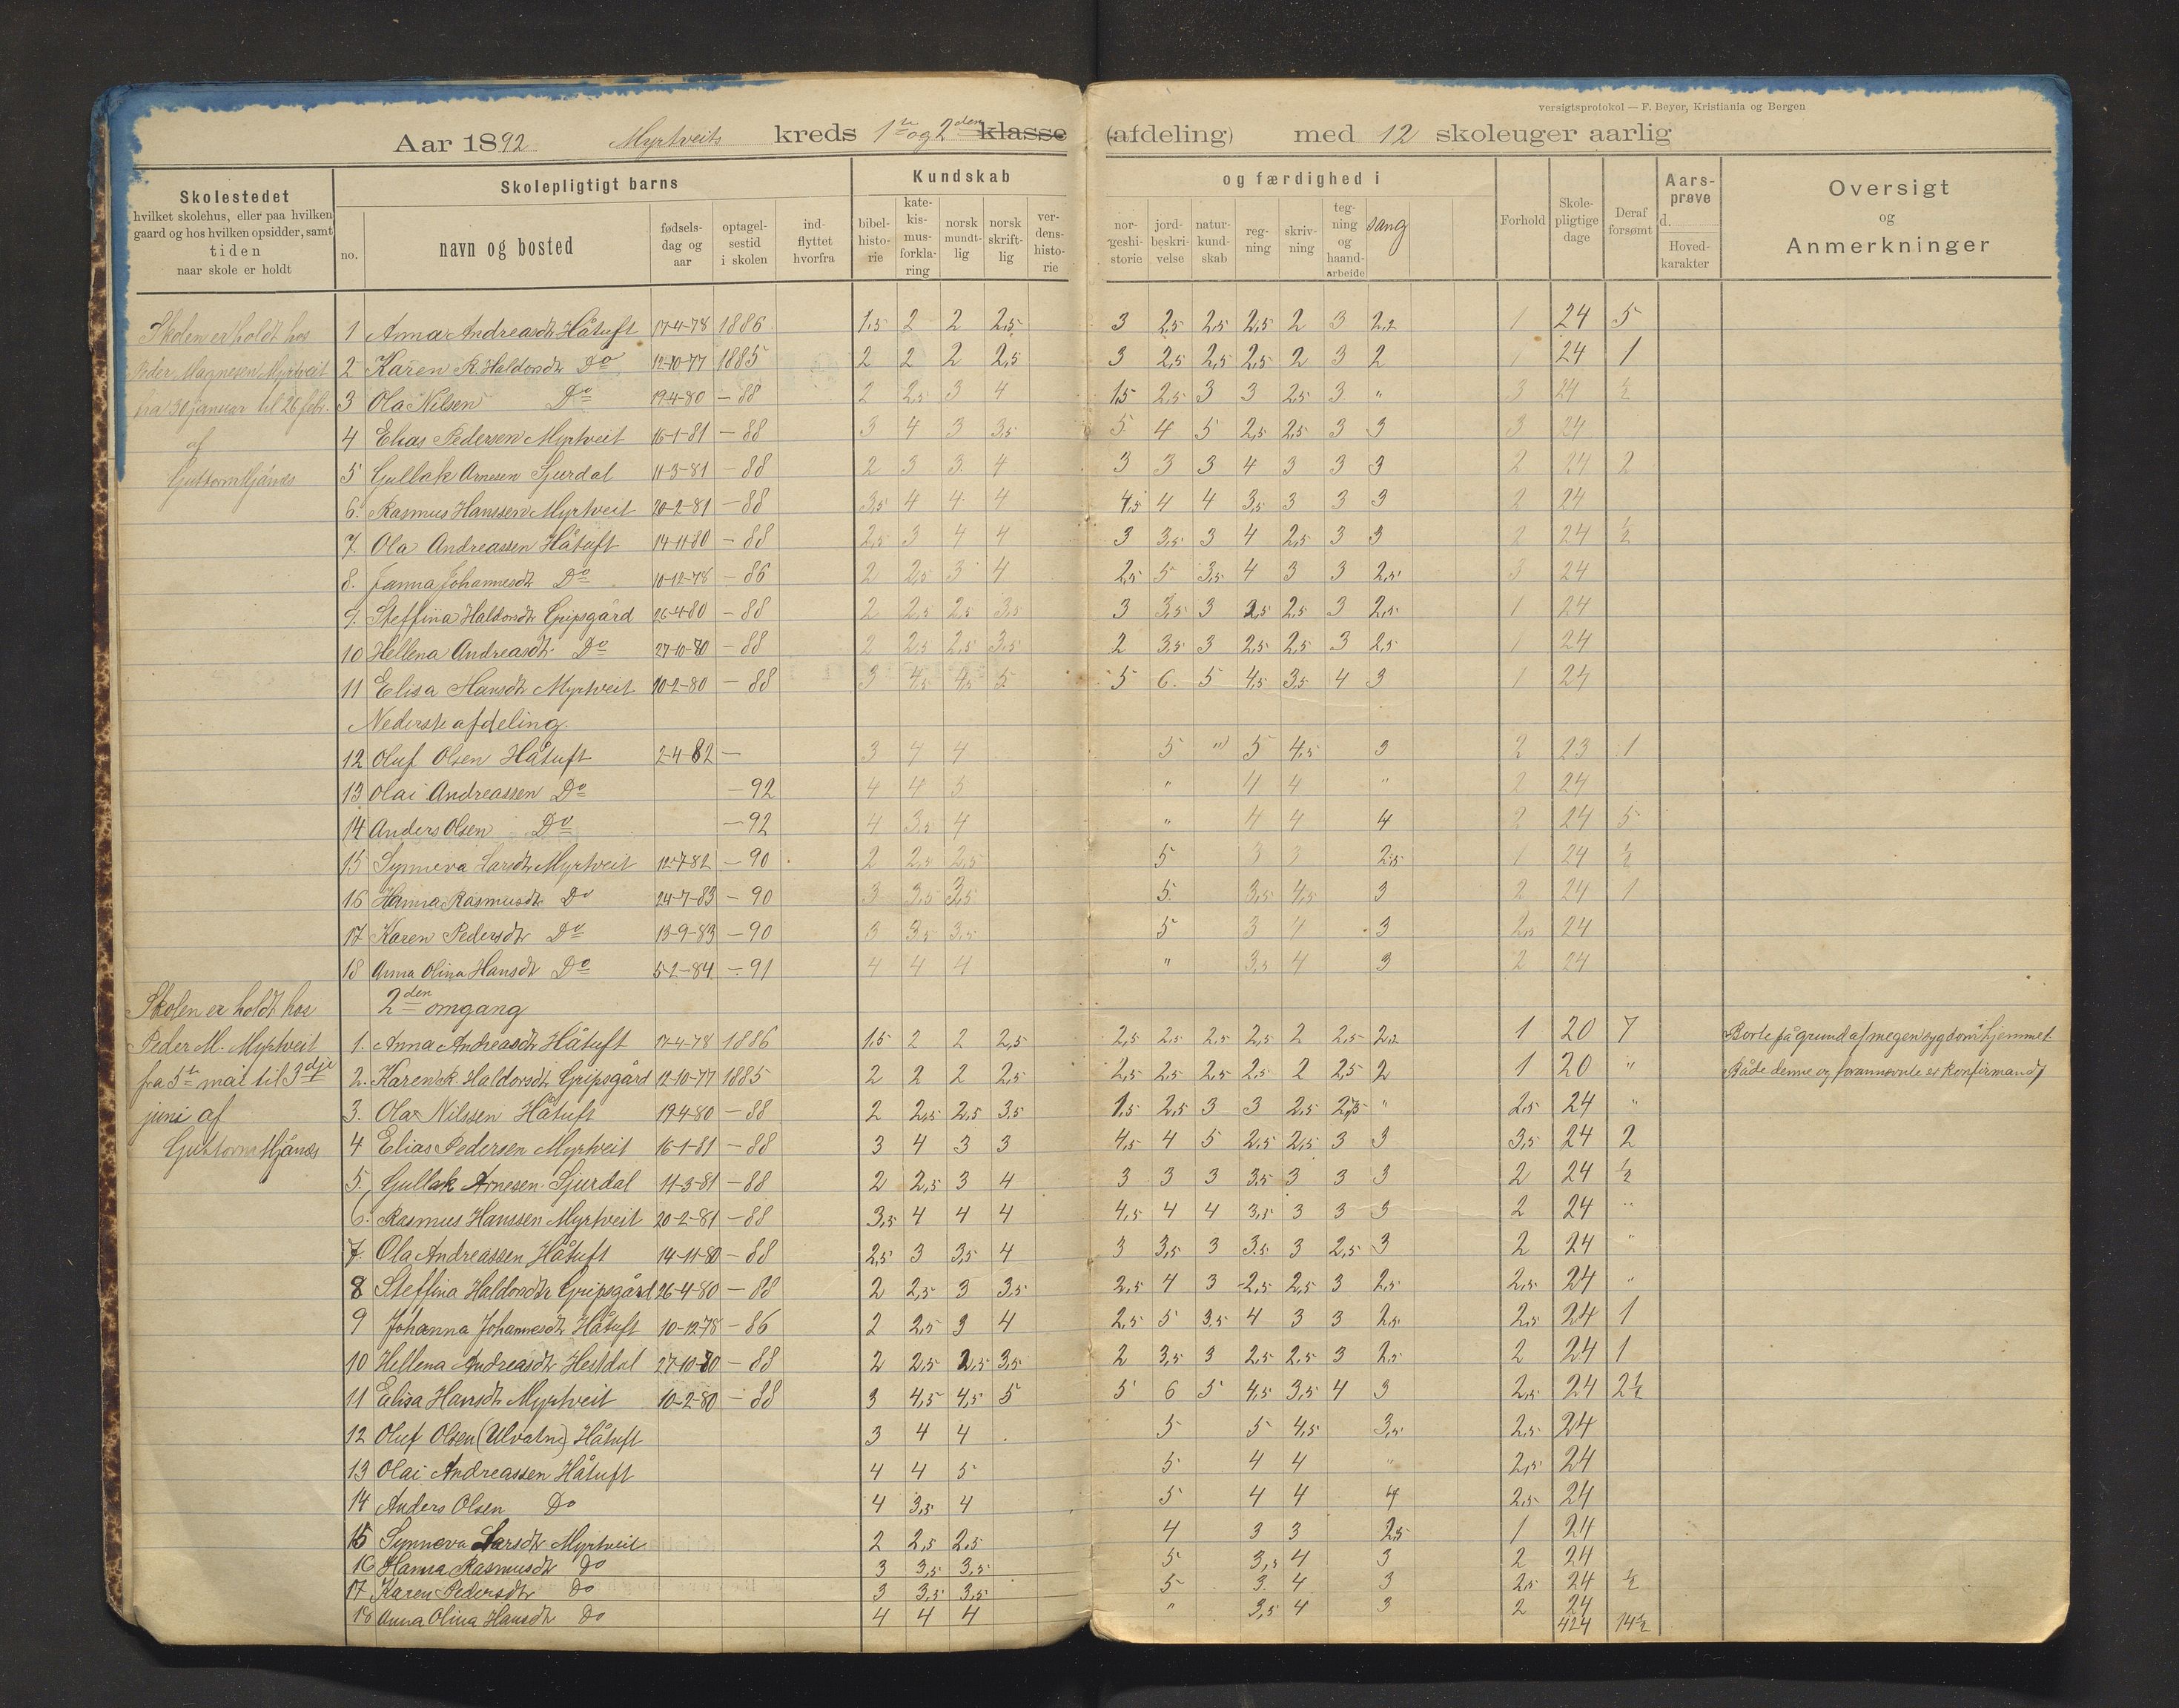 versigtsprotokol — F. Beyer, Kristiania og Bergen
Aar 1892 Myrtveits kreds 1ste og 2den klasse (afdeling) med 12 skoleuger aarlig
Skolestedet
hvilket skolehus, eller paa hvilken
gaard og hos hvilken opsidder, samt
tiden
naar skole er holdt
Skolepligtigt barns
no.
navn og bosted
fødsels-
dag og
aar
optagel-
sestid
i skolen
ind-
flyttet
hvorfra
Kundskab
bibel-
histo-
rie
kate-
kis-
mus-
forkla-
ring
norsk
mundt-
lig
norsk
skrift-
lig
ver-
dens-
histo-
rie
og færdighed i
nor-
geshi-
storie
jord-
beskri-
velse
natur-
kund-
skab
reg-
ning
skriv-
ning
teg-
ning
og
haand-
arbeide
sang
Forhold
Skole-
pligtige
dage
Deraf
forsømt
Aars-
prøve
d.
Hoved-
karakter
Oversigt
og
Anmerkninger
Skolen er holdt hos
Peder Magnesen Myrtveit
fra 30 januar til 26 febr.
af
Guttorm Hjånæs
1 Anna Andreasdtr Håtuft 17-4-78 1886 1,5 2 2 2,5 3 2,5 2,5 2,5 2 3 2,2 1 24 5
2 Karen K. Haldorsdtr Do 12-10-77 1885 2 2 2 2,5 3 2,5 2,5 2,5 2 3 2 1 24 1
3 Ola Nilsen Do 19-4-80 – 88 2 2,5 3 4 1,5 2,5 3 3 2,5 3 " 3 24 ½
4 Elias Pedersen Myrtveit 16-1-81 – 88 3 4 3 3,5 5 4 5 2,5 2,5 3 3 3 24
5 Gullak Arnesen Sjurdal 11-3-81 – 88 2 3 3 4 3 3 3 4 3 3 3 2 24 2
6. Rasmus Hanssen Myrtveit 20-2-81 – 88 3,5 4 4 4 4,5 4 4 3,5 3 3 3 2 24
7. Ola Andreassen Håtuft 14-11-80 – 88 2,5 3 4 4 3 3,5 3 4 2,5 3 3 2 24 ½
8. Janna Johannesdtr Do 10-12-78 – 86 2 2,5 3 4 2,5 5 3,5 4 3 3 2,5 3 24
9. Steffina Haldorsdtr Gripsgård 26-4-80 – 88 2 2,5 2,5 3,5 3 3,5 3 2,5 2,5 3 2,5 1 24
10 Hellena Andreasdtr Do 27-10-80 – 88 2 2,5 2,5 3,5 2 3,5 3 2,5 2,5 3 2,5 1 24
11 Elisa Hansdtr Myrtveit 10-2-80 – 88 3 4,5 4,5 5 5 6 5 4,5 3,5 4 3 1 24
Nederste afdeling.
12 Oluf Olsen Håtuft 2-4-82 – 3 4 4 5 " 5 4,5 3 2 23 1
13 Olai Andreassen Do – 92 4 4 5 " 4 4 " 2 24
14 Anders Olsen Do – 92 4 3,5 4 " 4 4 4 2 24 5
15 Synneva Larsdtr Myrtveit 12-7-82 – 90 2 2,5 2,5 5 3 3 2,5 1 24 ½
16 Hanna Rasmusdtr Do 24-7-83 – 90 3 3,5 3,5 5 3,5 4,5 3 2 24 1
17 Karen Pedersdtr Do 13-9-83 – 90 3 3,5 3,5 5 3 4 3 2,5 24
18 Anna Olina Hansdtr Do 5-2-84 – 91 4 4 4 " 3,5 4 3 2 24
Skolen er holdt hos
Peder M. Myrtveit
fra 5te mai til 3dje
juni af
Guttorm Hjånæs
2den omgang
1. Anna Andreasdtr Håtuft 17-4-78 1886 1,5 2 2 2,5 2,5 2,5 2,5 2,5 2 2,5 2,2 1 20 7 Borte på grund af megen sygdom i hjemmet
2. Karen K. Haldorsdtr Gripsgård 12-10-77 1885 2 2 2 2,5 2,5 2,5 2,5 2,5 2 2,5 2 1 20 " Både denne og foranførte er konfirmand
3. Ola Nilssen Håtuft 19-4-80 – 88 2 2,5 2,5 3,5 1,5 2,5 3 3 2,5 2,75 " 2,5 24 "
4 Elias Pedersen Myrtveit 16-1-81 – 88 3 4 3 3 4,5 4 5 2,5 2,5 3 3 3,5 24 2
5. Gullak Arnesen Sjurdal 11-3-81 – 88 2 2,5 3 4 3 3 3 3,5 3 3 3 2 24 ½
6. Rasmus Hanssen Myrtveit 20-2-81 – 88 3,5 4 4 4 4,5 4 4 3,5 3 3 3 2 24 "
7. Ola Andreassen Håtuft 14-11-80 – 88 2,5 3 3,5 4 3 3,5 3 3,5 3 2,5 3 2 24 "
8 Steffina Haldorsdtr Gripsgård 26-4-80 – 88 2 2,5 3 3,5 2,5 4 3 2,5 2,5 3 2,5 2,5 24 "
9 Johanna Johannesdtr Håtuft 10-12-78 – 86 2 2,5 3 4 2,5 5 3,5 4 3 3 2,5 2,5 24 1
10 Hellena Andreasdtr Hestdal 27-10-80 – 88 2 2,5 2,5 3,5 2 3,5 3 2,5 2,5 3 2,5 2 24 1
11 Elisa Hansdtr Myrtveit 10-2-80 – 88 3 4,5 4,5 5 5 6 5 4,5 3,5 4 3 2,5 24 2½
12 Oluf Olsen (Ulvatne) Håtuft 3 4 4 5 5 4,5 3,5 2,5 24
13 Olai Andreassen Håtuft 4 4 5 5 4 4 " 2,5 24
14 Anders Olsen Do 4 3,5 4 5 4 4 4 2,5 24
15 Synneva Larsdtr Myrtveit 2 2,5 2,5 4 3 3 2,5 1 24
16 Hanna Rasmusdtr Do 3 3,5 3,5 5 3,5 4 3 2 24
17 Karen Pedersdtr Do 3 3,5 3,5 5 3 4 3 2,5 24 ½
18 Anna Olina Hansdtr Do 4 4 4 " 3,5 4 3 2 24
424 14½